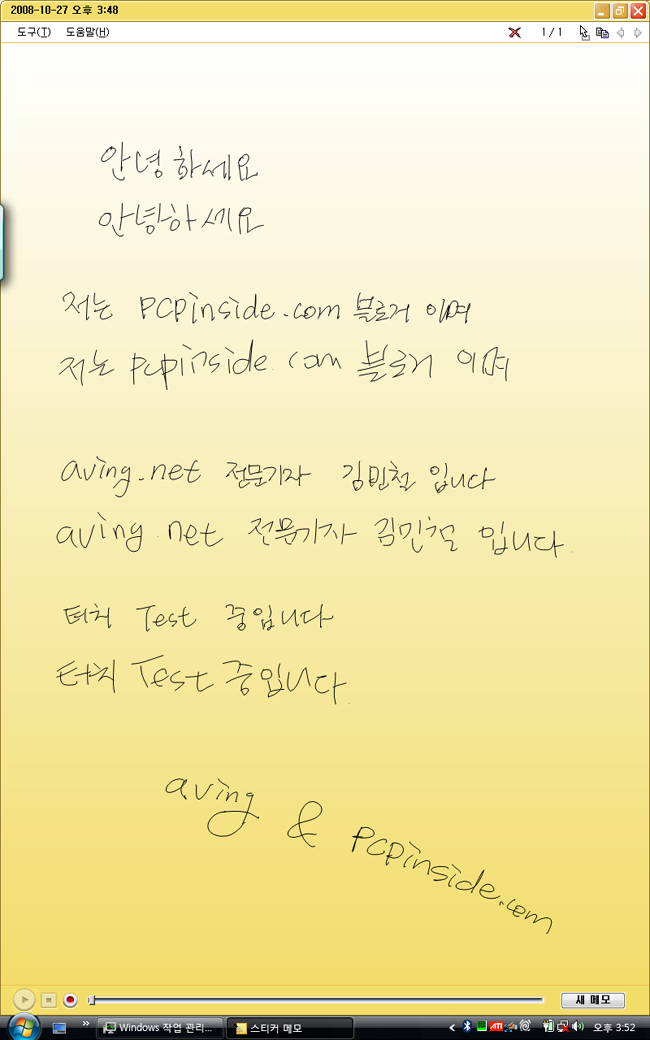 2008-10-27 오후 3:48
도구(T) 도움말(H) 1 / 1
안녕하세요
안녕하세요
저는 PCPinside.com 블로거 이며
저는 pcpinside.com 블로거 이며
aving.net 전문기자 김민철 입니다
aving net 전문기자 김민철 입니다.
터치 Test 중입니다
터치 Test 중입니다.
aving & PCPinside.com
새 메모
» Windows 작업 관리... 스티커 메모 < ATI 오후 3:52